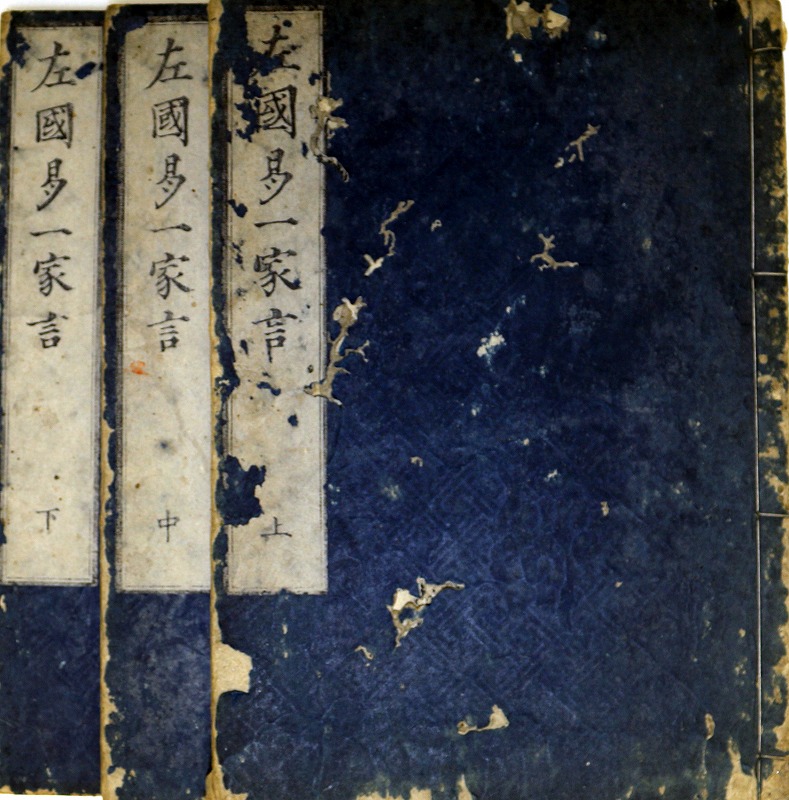 左國易一家言 上
左國易一家言 中
左國易一家言 下